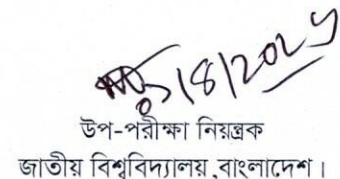 উপ-পরীক্ষা নিয়ন্ত্রক
জাতীয় বিশ্ববিদ্যালয়,বাংলাদেশ।